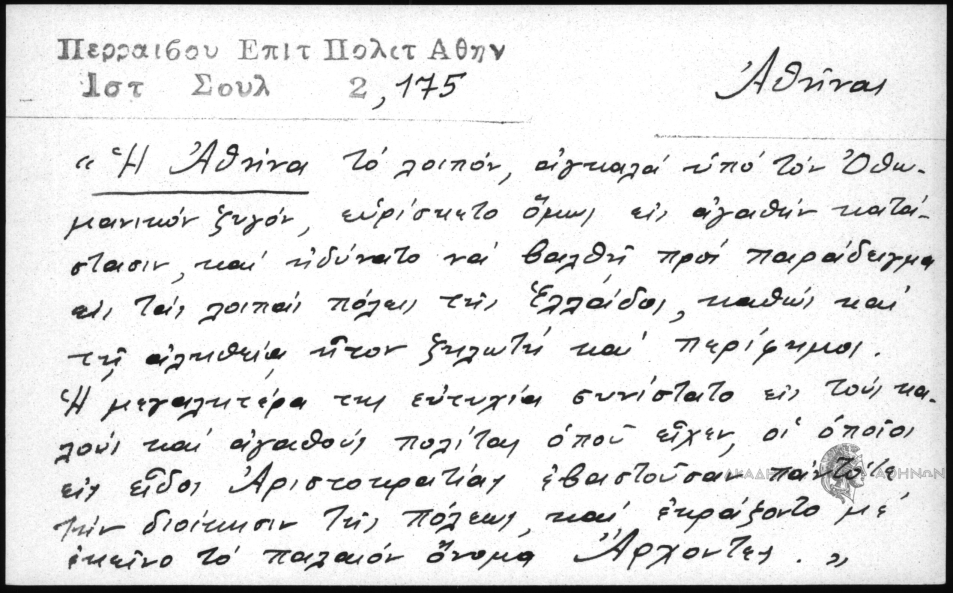 Περραιβου Επιτ Πολιτ Αθην
Ιστ Σουλ 2, 175
Ἀθῆναι
« Ἡ Ἀθήνα τὸ λοιπόν, ἀγκαλὰ ὑπὸ τὸν Ὀθω-
μανικὸν ζυγόν, εὑρίσκετο ὅμως εἰς ἀγαθὴν κατά-
στασιν, καὶ ἠδύνατο νὰ βαλθῇ πρὸς παράδειγμα
εἰς τὰς λοιπὰς πόλεις τῆς Ἑλλάδος, καθὼς καὶ
τῇ ἀληθείᾳ ἦτον ζηλωτὴ καὶ περίφημος.
Ἡ μεγαλητέρα της εὐτυχία συνίστατο εἰς τοὺς κα-
λοὺς καὶ ἀγαθοὺς πολίτας ὁποῦ εἶχεν, οἱ ὁποῖοι
εἰς εἶδος Ἀριστοκρατίας ἐβαστοῦσαν πάντοτε
τὴν διοίκησιν τῆς πόλεως, καὶ ἐκράζοντο μὲ
ἐκεῖνο τὸ παλαιὸν ὄνομα Ἄρχοντες. »
ΑΚΑΔΗ ΑΘΗΝΩΝ